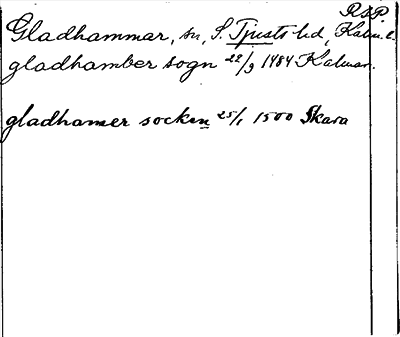 R&P.
Gladhammar, sn, S. Tjusts hd, Kalm. l.
gladhamber sogn 22/9 1484 Kalmar.
gladhamer socken 25/1 1500 Skara